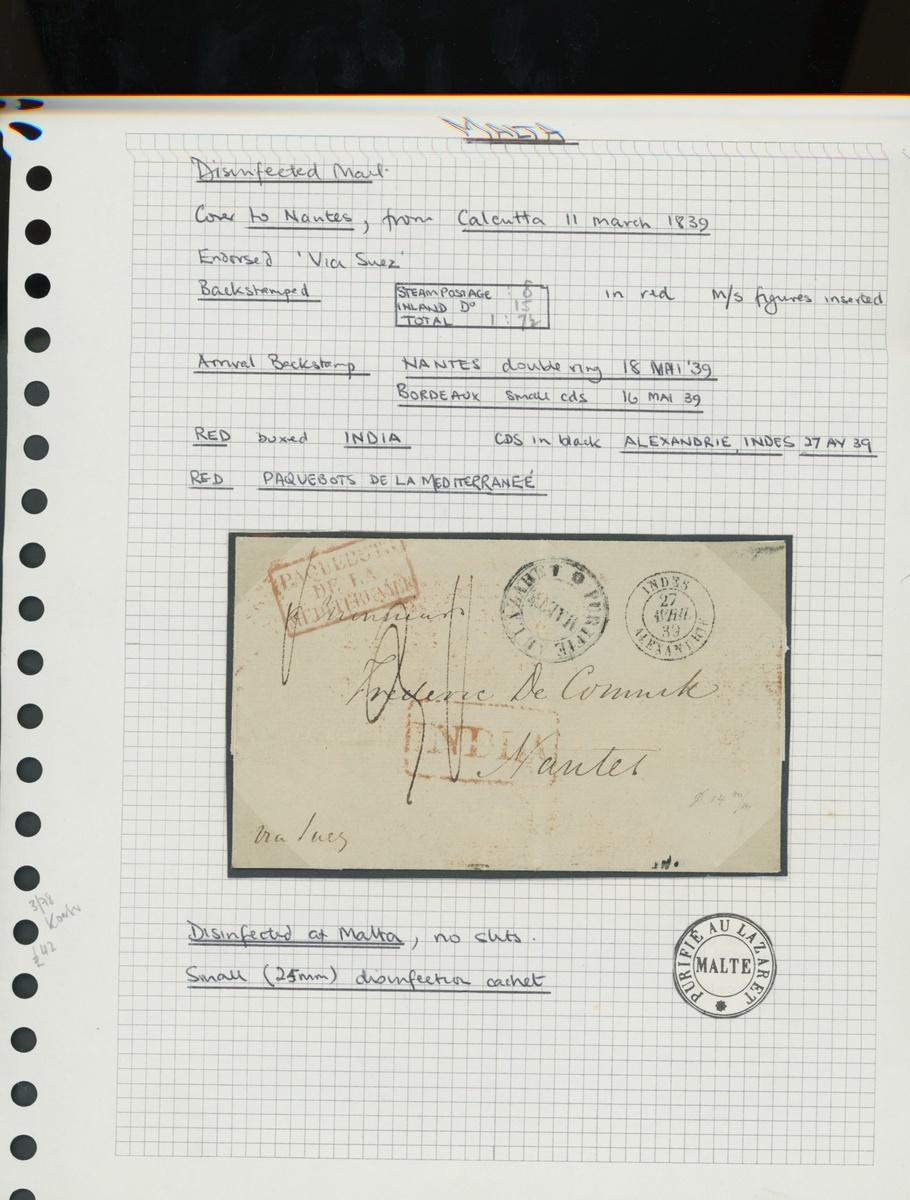 MALTA
Disinfected Mail.
Cover to Nantes, from Calcutta 11 march 1839
Endorsed 'Via Suez'
Backstamped
STEAM POSTAGE : 8
INLAND Dº 15
TOTAL 1 : 7½
in red M/s figures inserted
Arrival Backstamp NANTES double ring 18 MAI '39
BORDEAUX small cds 16 MAI 39
RED boxed INDIA CDS in black ALEXANDRIE, INDES 27 AV 39
RED PAQUEBOTS DE LA MEDITERRANEÉ
PAQUEBOTS
DE LA
MEDITERRANEE
PURIFIE AU LAZARET
MALTE
INDES
27
AVRIL
39
ALEXANDRIE
Monsieur
Frederic De Connick
INDIA
Nantes
via Suez
3/78
£42
Disinfected at Malta, no slits.
Small (25mm) disinfection cachet
PURIFIÉ AU LAZARET
MALTE